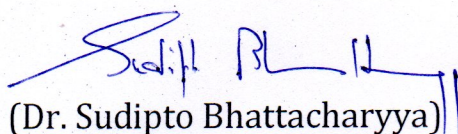 Sudipto Bhattacharyya
(Dr. Sudipto Bhattacharyya)